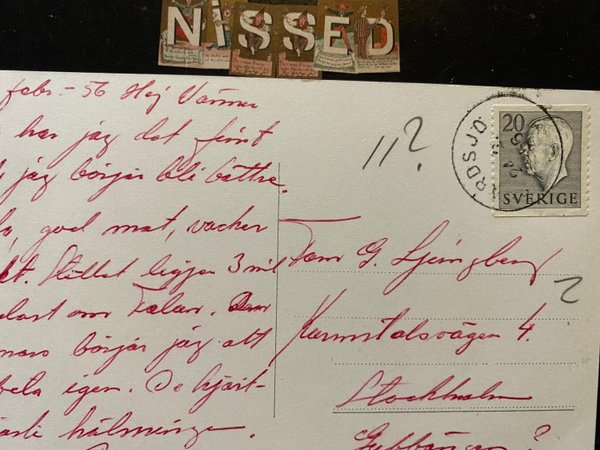 NiSSED
febr - 56 Hej Vänner
har jag det fint
jag börjar bli bättre.
god mat, vacker
Stället ligger 3 mil
om Falun.
börjar jag att
igen. De hjärt-
hälsningar.
11?
RDSJÖ
20
SVERIGE
Fam G. Ljungberg
?
Karmstolsvägen 4.
Stockholm
Gubbängen ?